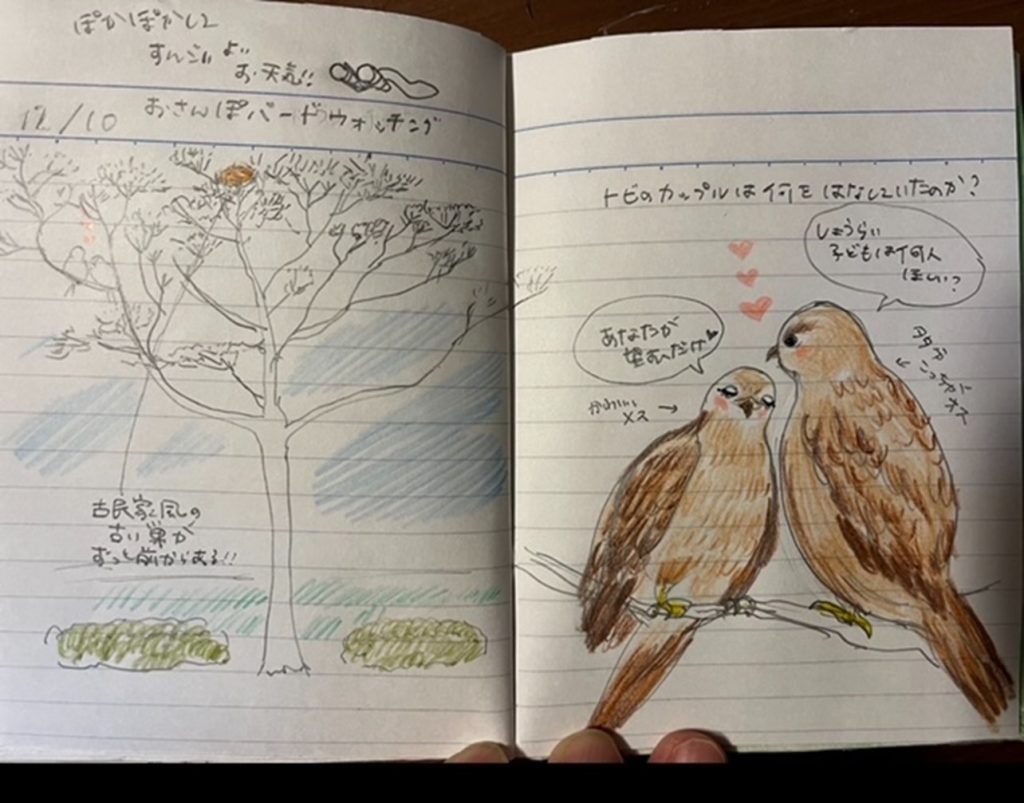 ぽかぽかして
すんごいよい
お天気!!
12/10 おさんぽバードウォッチング
古民家風の
古い巣が
ずっと前からある!!
トビのカップルは何をはなしていたのか?
しょうらい
子どもは何人
ほしい?
あなたが
望むだけ♥
かわいい
メス→
←
こっちがに
メス